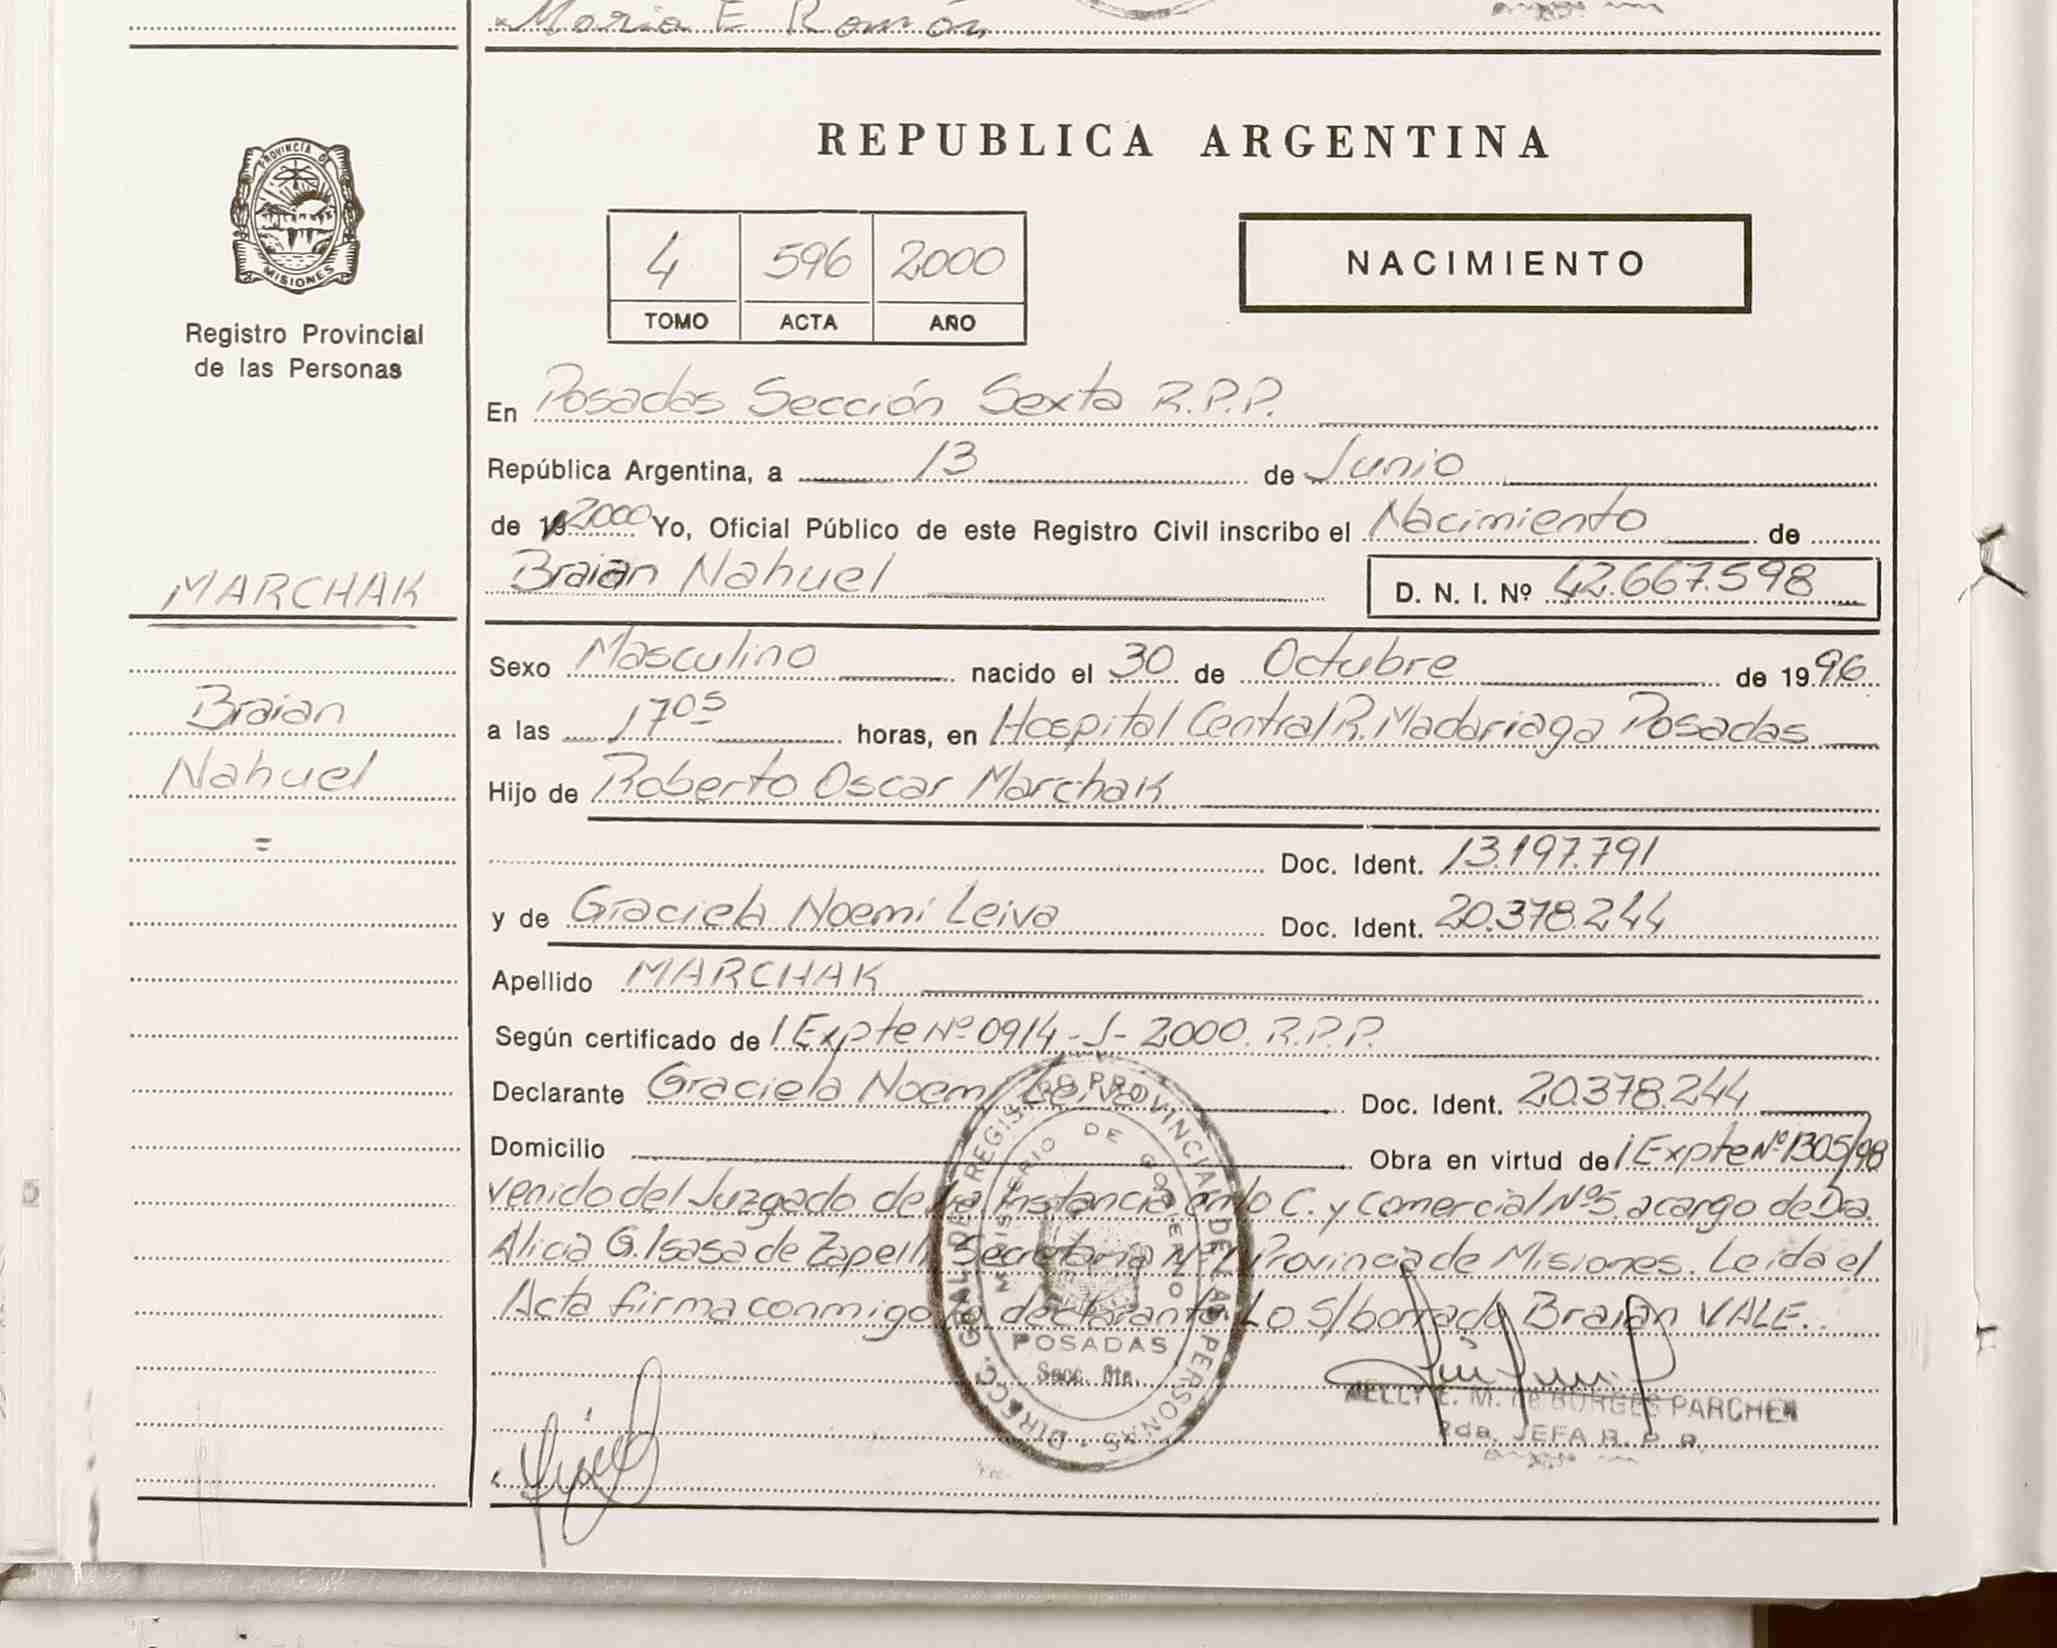 Maria E. Román
PROVINCIA DE
MISIONES
Registro Provincial
de las Personas
MARCHAK
Braian
Nahuel
=
REPUBLICA ARGENTINA
4 596 2000
TOMO ACTA AÑO
NACIMIENTO
En Posadas Sección Sexta R.P.P.
República Argentina, a 13 de Junio
de 19 2000 Yo, Oficial Público de este Registro Civil inscribo el Nacimiento de
Braian Nahuel D. N. I. Nº 42.667.598
Sexo Masculino nacido el 30 de Octubre de 1996
a las 17 05 horas, en Hospital Central R. Madariaga Posadas
Hijo de Roberto Oscar Marchak
Doc. Ident. 13.197.791
y de Graciela Noemí Leiva Doc. Ident. 20.378.244
Apellido MARCHAK
Según certificado de / Expte Nº 0914-J-2000. R.P.P.
Declarante Graciela Noemí Leiva Doc. Ident. 20.378.244
Domicilio Obra en virtud de / Expte Nº 1305/98
venido del Juzgado de 1a Instancia en lo C. y Comercial Nº 5. a cargo de Dra.
Alicia G. Isasa de Zapelli Secretaria Nº 1 Provincia de Misiones. Leida el
Acta firma conmigo la declarante. Lo S/borrado Braian VALE.
DIRECC. GRAL. DE REGISTRO PROVINCIAL DE LAS PERSONAS
MINISTERIO DE GOBIERNO
POSADAS
Secc. 6ta.
NELLY E. M. de BORGES PARCHEN
2da. JEFA R. P. P.